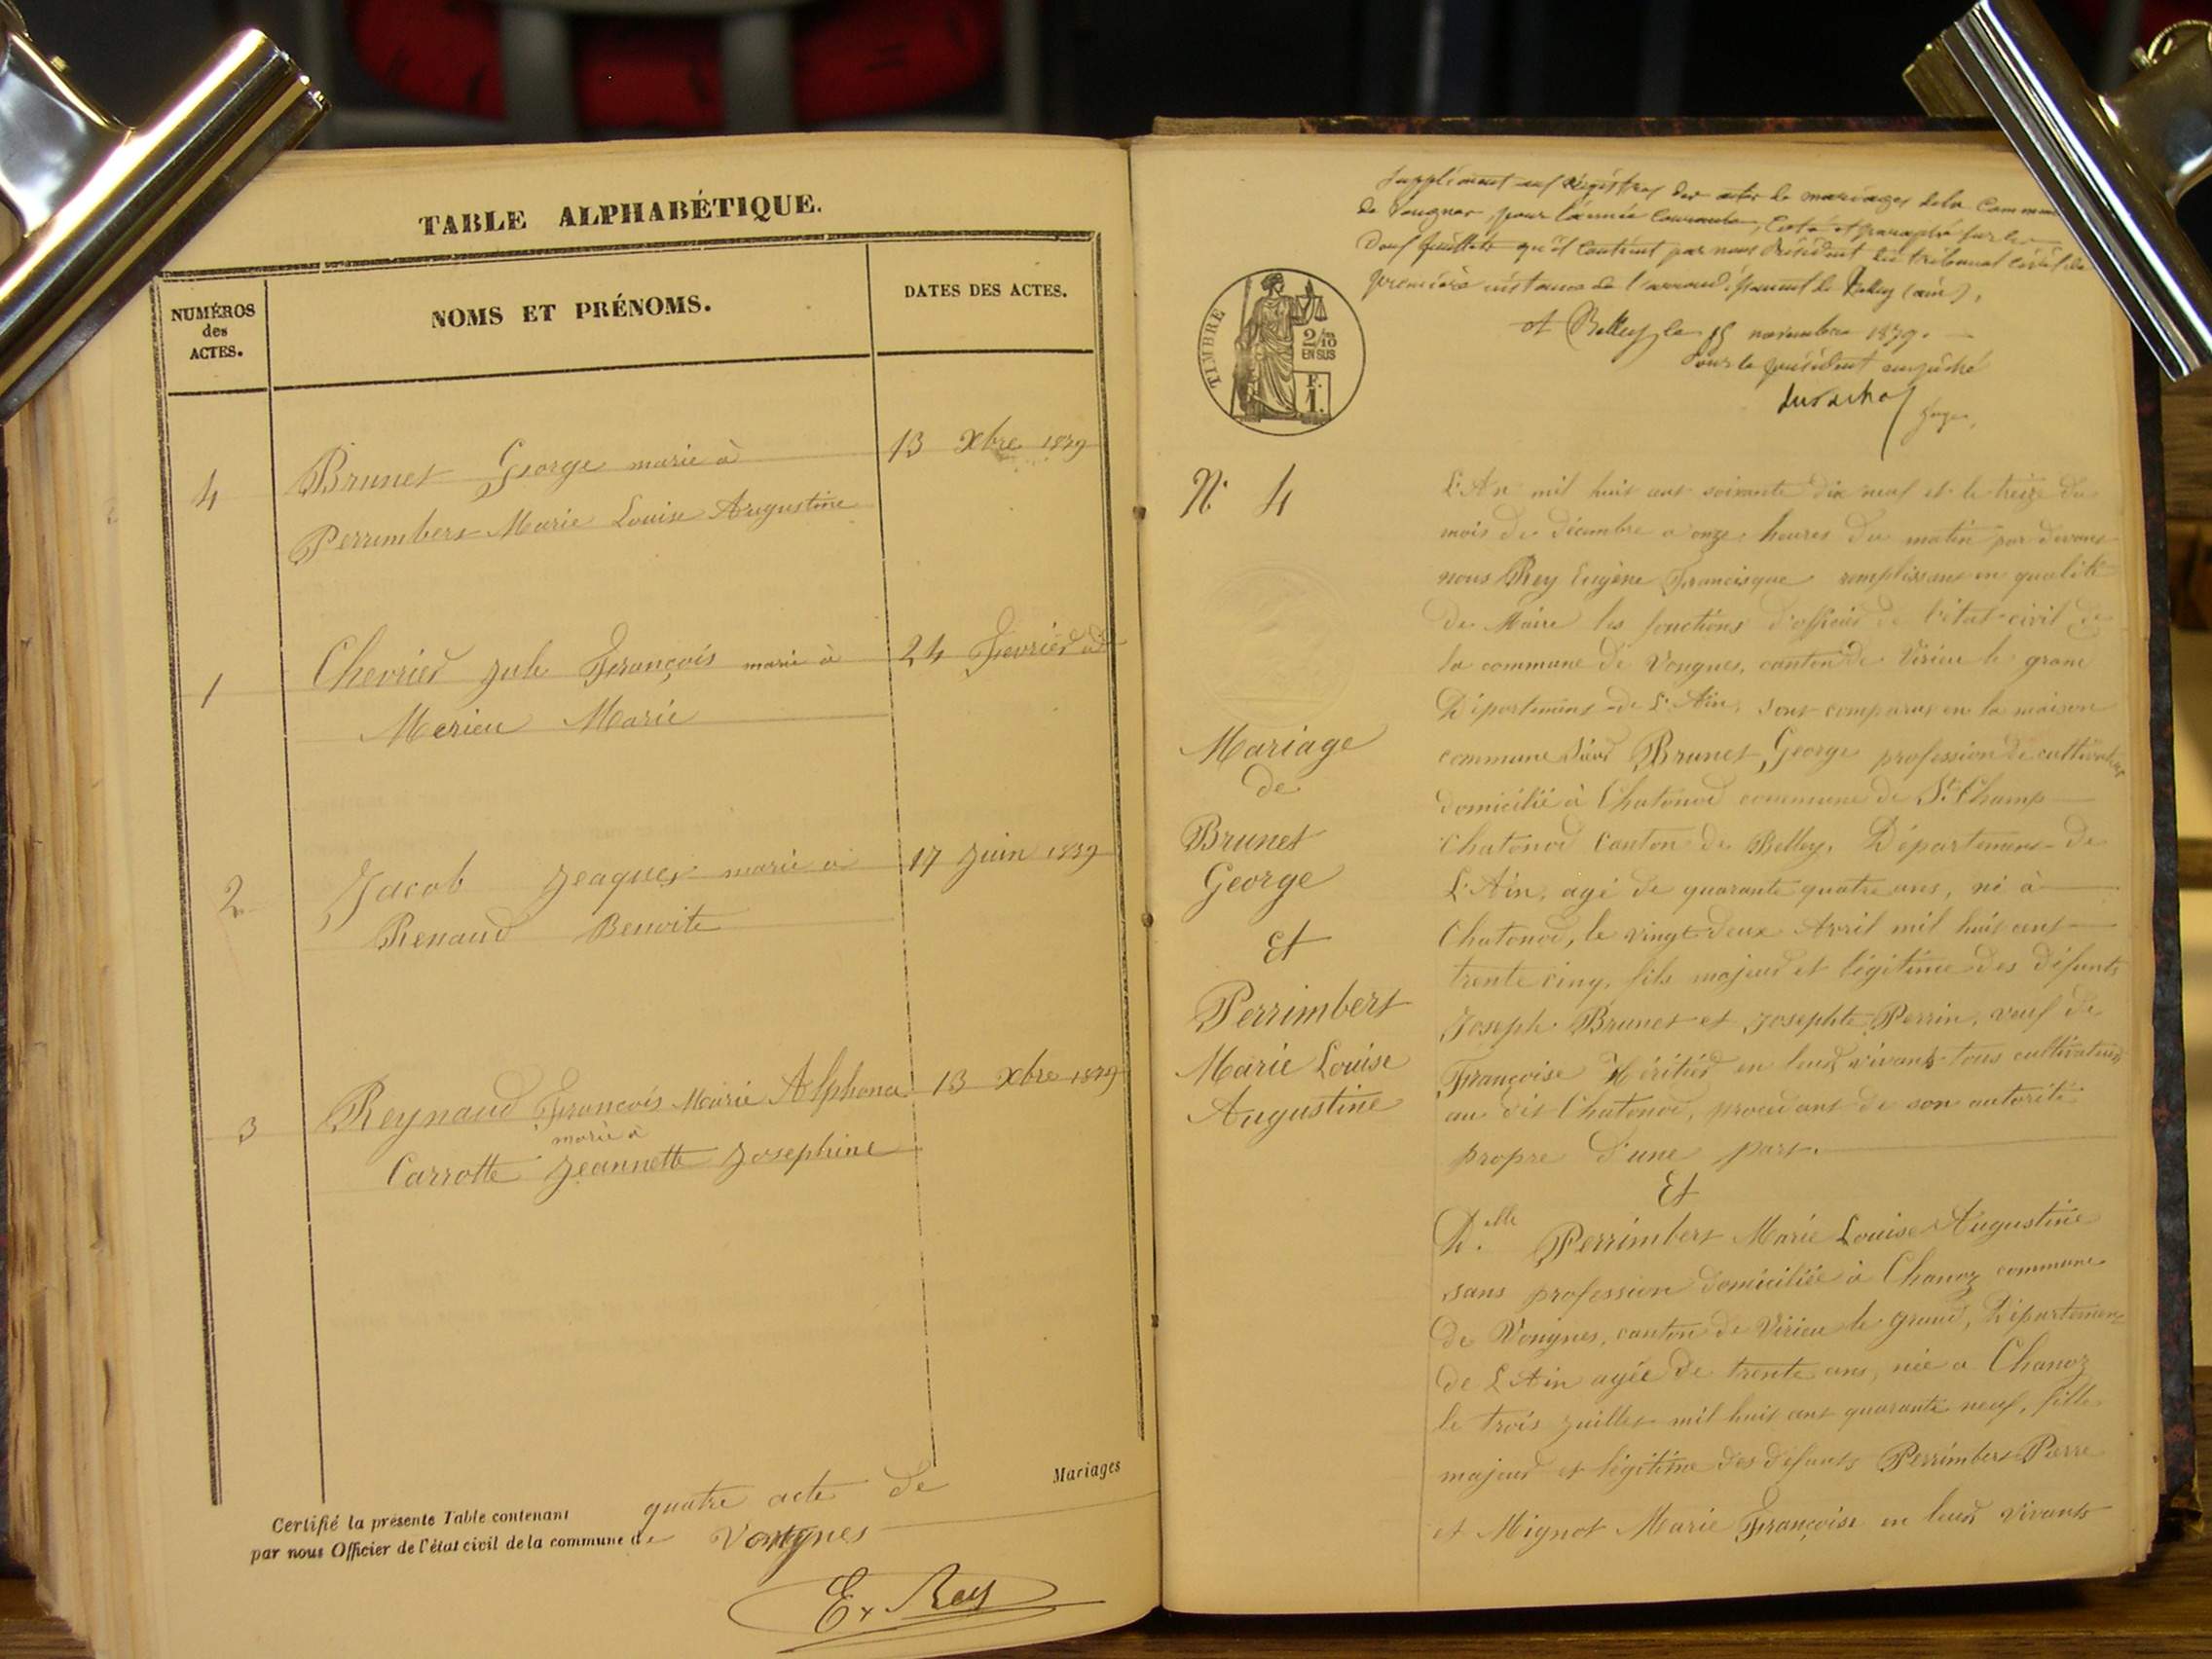 TABLE ALPHABÉTIQUE.
NUMÉROS
des
ACTES.
NOMS ET PRÉNOMS.
DATES DES ACTES.
4 Brunet George marié à 13 Xbre 1879
Perrimbert Marie Louise Augustine
1 Chevrier Jule François marié à 24 Fevrier
Merieu Marie
2 Jacob Jeaques marié à 17 Juin 1879
Renaud Benoite
3 Reynaud François Marie Alphonce 13 Xbre 1879
marié à
Carrotte Jeannette Josephine
Certifié la présente Table contenant quatre acte de Mariages
par nous Officier de l'état civil de la commune de Vongnes
E. Rey
Supplément aux régistres des actes de mariages de la Commune
de Vougnes, pour l'année courante, coté et paraphé sur les
deux feuillets qu'il contient par nous Président du tribunal civil de
première instance de l'arrondissement de Belley (ain),
A Belley le 15 novembre 1879.
Pour le président empêché
Juge.
TIMBRE
2/10
EN SUS
F.
1.
N° 4
Mariage
de
Brunet
George
Et
Perrimbert
Marie Louise
Augustine
L'An mil huit cent soixante dix neuf et le treize du
mois de décembre a onze heures du matin par devant
nous Rey Eugène Francisque remplissant en qualité
de Maire les fonctions d'officier de l'état-civil de
la commune de Vongnes, canton de Virieu le grand
Département de L'Ain, sont comparus en la maison
commune Sieur Brunet George profession de cultivateur
domicilié à Chatonod commune de St Champ
Chatonod Canton de Belley, Département de
L'Ain, agé de quarante quatre ans, né à
Chatonod, le vingt deux Avril mil huit cent
trente cinq, fils majeur et légitime des défunts
Joseph Brunet et Josephte Perrin, veuf de
Françoise Héritier en leur vivant tous cultivateurs
au dit Chatonod, procédant de son autorité
propre d'une part.
Et
D.elle Perrimbert Marie Louise Augustine
sans profession domiciliée à Chanoz commune
de Vongnes, canton de Virieu le grand, Département
de L'Ain agée de trente ans, née a Chanoz
le trois juillet mil huit cent quarante neuf, fille
majeur et légitime des défunts Perrimbert Pierre
et Mignot Marie Françoise en leur vivants